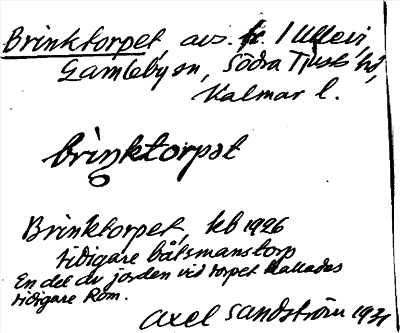 Brinktorpet, avs. fr. 1 Ullevi,
Gamleby sn, Södra Tjusts hd,
Kalmar l.
brinktorpət
Brinktorpet, kb 1926
tidigare båtsmanstorp
En del av jorden vid torpet kallades
tidigare Rom.
Axel Sandström 1931